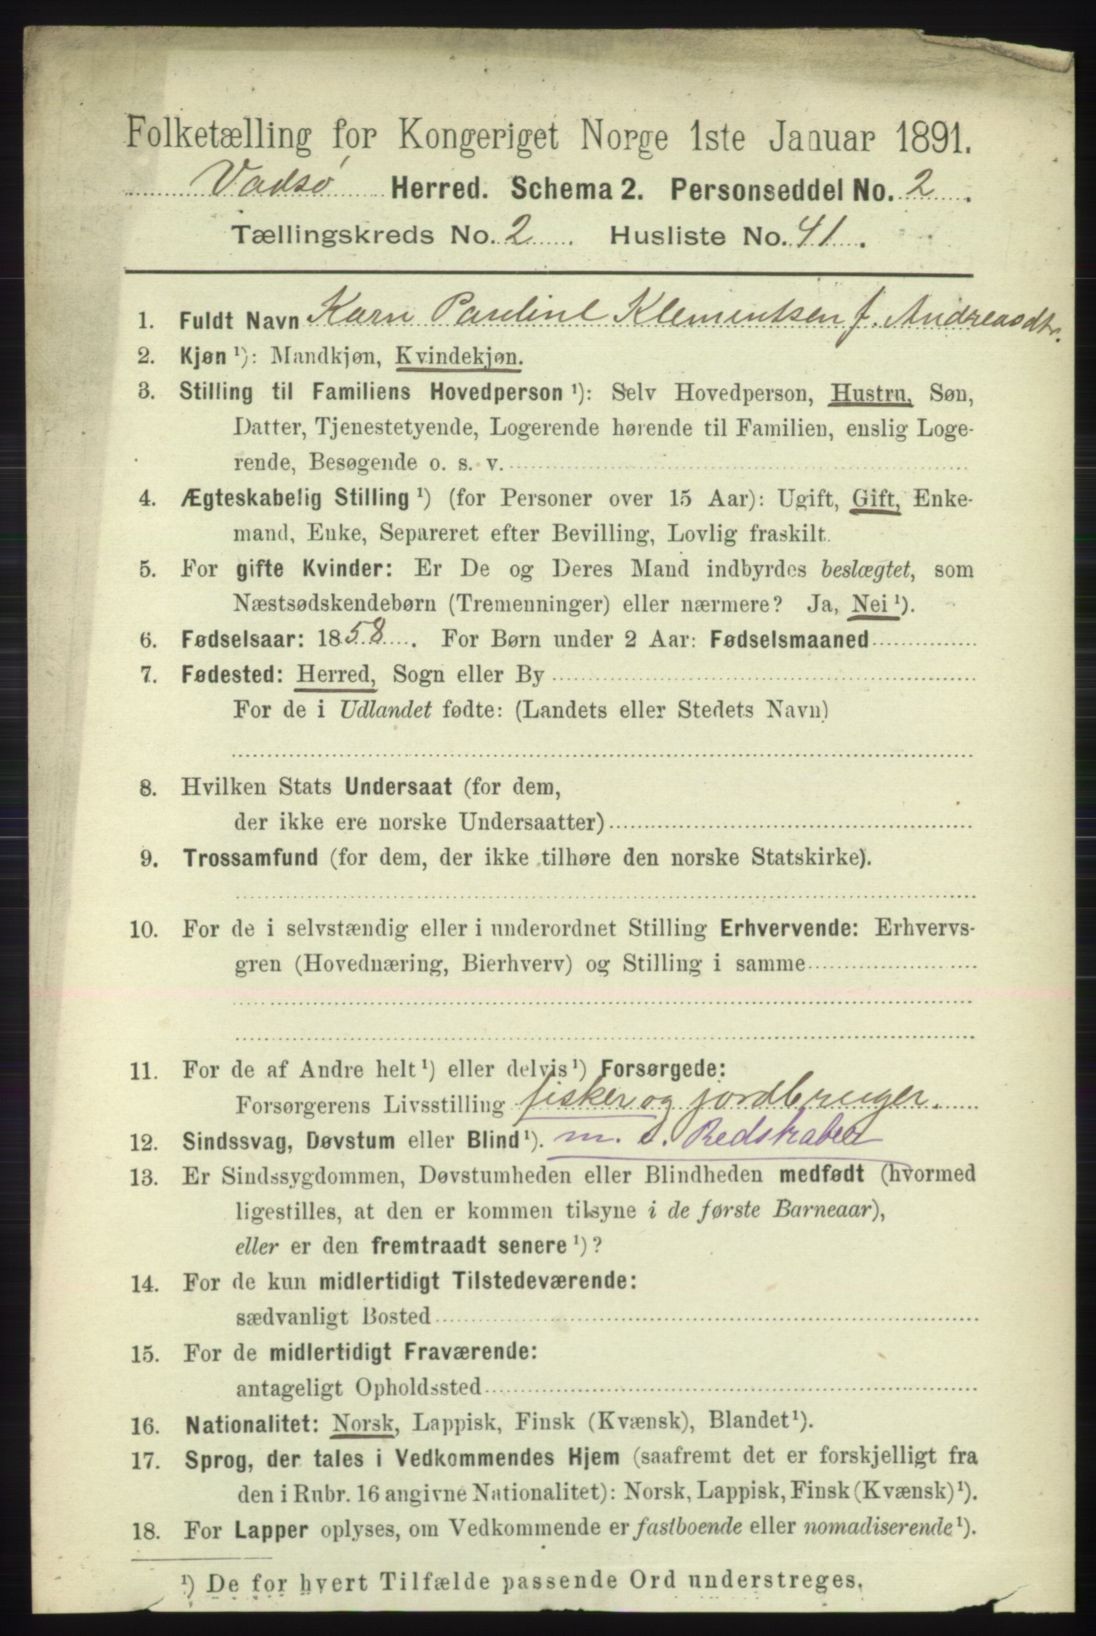 Folketælling for Kongeriget Norge 1ste Januar 1891.
Vadsø Herred. Schema 2. Personseddel No. 2.
Tællingskreds No. 2. Husliste No. 41.
1. Fuldt Navn Karn Pauline Klementsen f. Andreasdtr.
2. Kjøn ¹): Mandkjøn, Kvindekjøn.
3. Stilling til Familiens Hovedperson ¹): Selv Hovedperson, Hustru, Søn,
Datter, Tjenestetyende, Logerende hørende til Familien, enslig Loge-
rende, Besøgende o. s. v.
4. Ægteskabelig Stilling ¹) (for Personer over 15 Aar): Ugift, Gift, Enke-
mand, Enke, Separeret efter Bevilling, Lovlig fraskilt.
5. For gifte Kvinder: Er De og Deres Mand indbyrdes beslægtet, som
Næstsødskendebørn (Tremenninger) eller nærmere? Ja, Nei ¹).
6. Fødselsaar: 1858. For Børn under 2 Aar: Fødselsmaaned
7. Fødested: Herred, Sogn eller By
For de i Udlandet fødte: (Landets eller Stedets Navn)
8. Hvilken Stats Undersaat (for dem,
der ikke ere norske Undersaatter)
9. Trossamfund (for dem, der ikke tilhøre den norske Statskirke).
10. For de i selvstændig eller i underordnet Stilling Erhvervende: Erhvervs-
gren (Hovednæring, Bierhverv) og Stilling i samme
11. For de af Andre helt ¹) eller delvis ¹) Forsørgede:
Forsørgerens Livsstilling fisker og jordbruger.
12. Sindssvag, Døvstum eller Blind ¹). m. e. Redskaber
13. Er Sindssygdommen, Døvstumheden eller Blindheden medfødt (hvormed
ligestilles, at den er kommen tilsyne i de første Barneaar),
eller er den fremtraadt senere ¹)?
14. For de kun midlertidigt Tilstedeværende:
sædvanligt Bosted
15. For de midlertidigt Fraværende:
antageligt Opholdssted
16. Nationalitet: Norsk, Lappisk, Finsk (Kvænsk), Blandet ¹).
17. Sprog, der tales i Vedkommendes Hjem (saafremt det er forskjelligt fra
den i Rubr. 16 angivne Nationalitet): Norsk, Lappisk, Finsk (Kvænsk) ¹).
18. For Lapper oplyses, om Vedkommende er fastboende eller nomadiserende ¹).
¹) De for hvert Tilfælde passende Ord understreges.